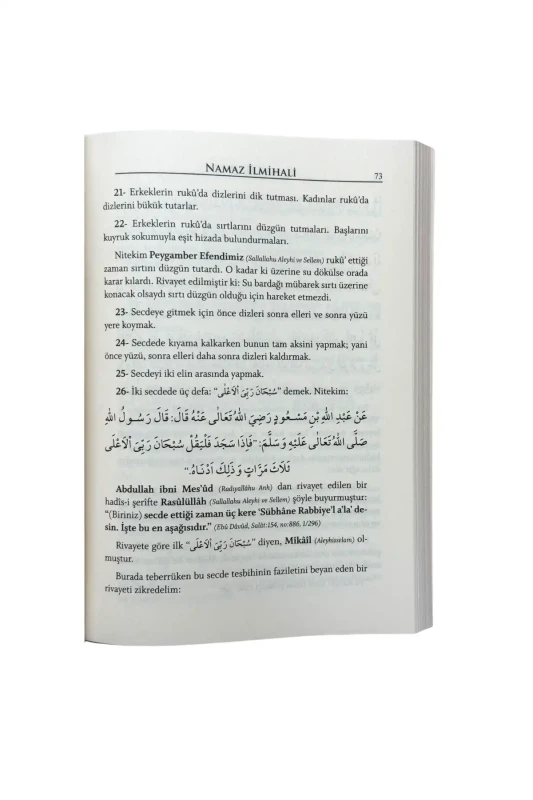 NAMAZ İLMİHALİ
73
21- Erkeklerin rukû'da dizlerini dik tutması. Kadınlar rukû'da
dizlerini bükük tutarlar.
22- Erkeklerin rukû'da sırtlarını düzgün tutmaları. Başlarını
kuyruk sokumuyla eşit hizada bulundurmaları.
Nitekim Peygamber Efendimiz (Sallallahu Aleyhi ve Sellem) rukû' ettiği
zaman sırtını düzgün tutardı. O kadar ki üzerine su dökülse orada
karar kılardı. Rivayet edilmiştir ki: Su bardağı mübarek sırtı üzerine
konacak olsaydı sırtı düzgün olduğu için hareket etmezdi.
23- Secdeye gitmek için önce dizleri sonra elleri ve sonra yüzü
yere koymak.
24- Secdede kıyama kalkarken bunun tam aksini yapmak; yani
önce yüzü, sonra elleri daha sonra dizleri kaldırmak.
25- Secdeyi iki elin arasında yapmak.
26- İki secdede üç defa: “سُبْحَانَ رَبِّىَ اْلاَعْلٰى” demek. Nitekim:
عَنْ عَبْدِ اللهِ بْنِ مَسْعُودٍ رَضِيَ اللهُ تَعَالٰى عَنْهُ قَالَ: قَالَ رَسُولُ اللهِ
صَلَّى اللهُ تَعَالٰى عَلَيْهِ وَسَلَّمَ: "فَاِذَا سَجَدَ فَلْيَقُلْ سُبْحَانَ رَبِّىَ اْلاَعْلٰى
ثَلَاثَ مَرَّاتٍ وَذٰلِكَ اَدْنَاهُ."
Abdullah ibni Mes'ûd (Radıyallâhu Anh) dan rivayet edilen bir
hadîs-i şerîfte Rasûlüllâh (Sallallahu Aleyhi ve Sellem) şöyle buyurmuştur:
“(Biriniz) secde ettiği zaman üç kere 'Sübhâne Rabbiye'l a'la' de-
sin. İşte bu en aşağısıdır.” (Ebû Dâvûd, Salât:154, no:886, 1/296)
Rivayete göre ilk “سُبْحَانَ رَبِّىَ اْلاَعْلٰى” diyen, Mikâîl (Aleyhisselam) ol-
muştur.
Burada teberrüken bu secde tesbihinin faziletini beyan eden bir
rivayeti zikredelim: